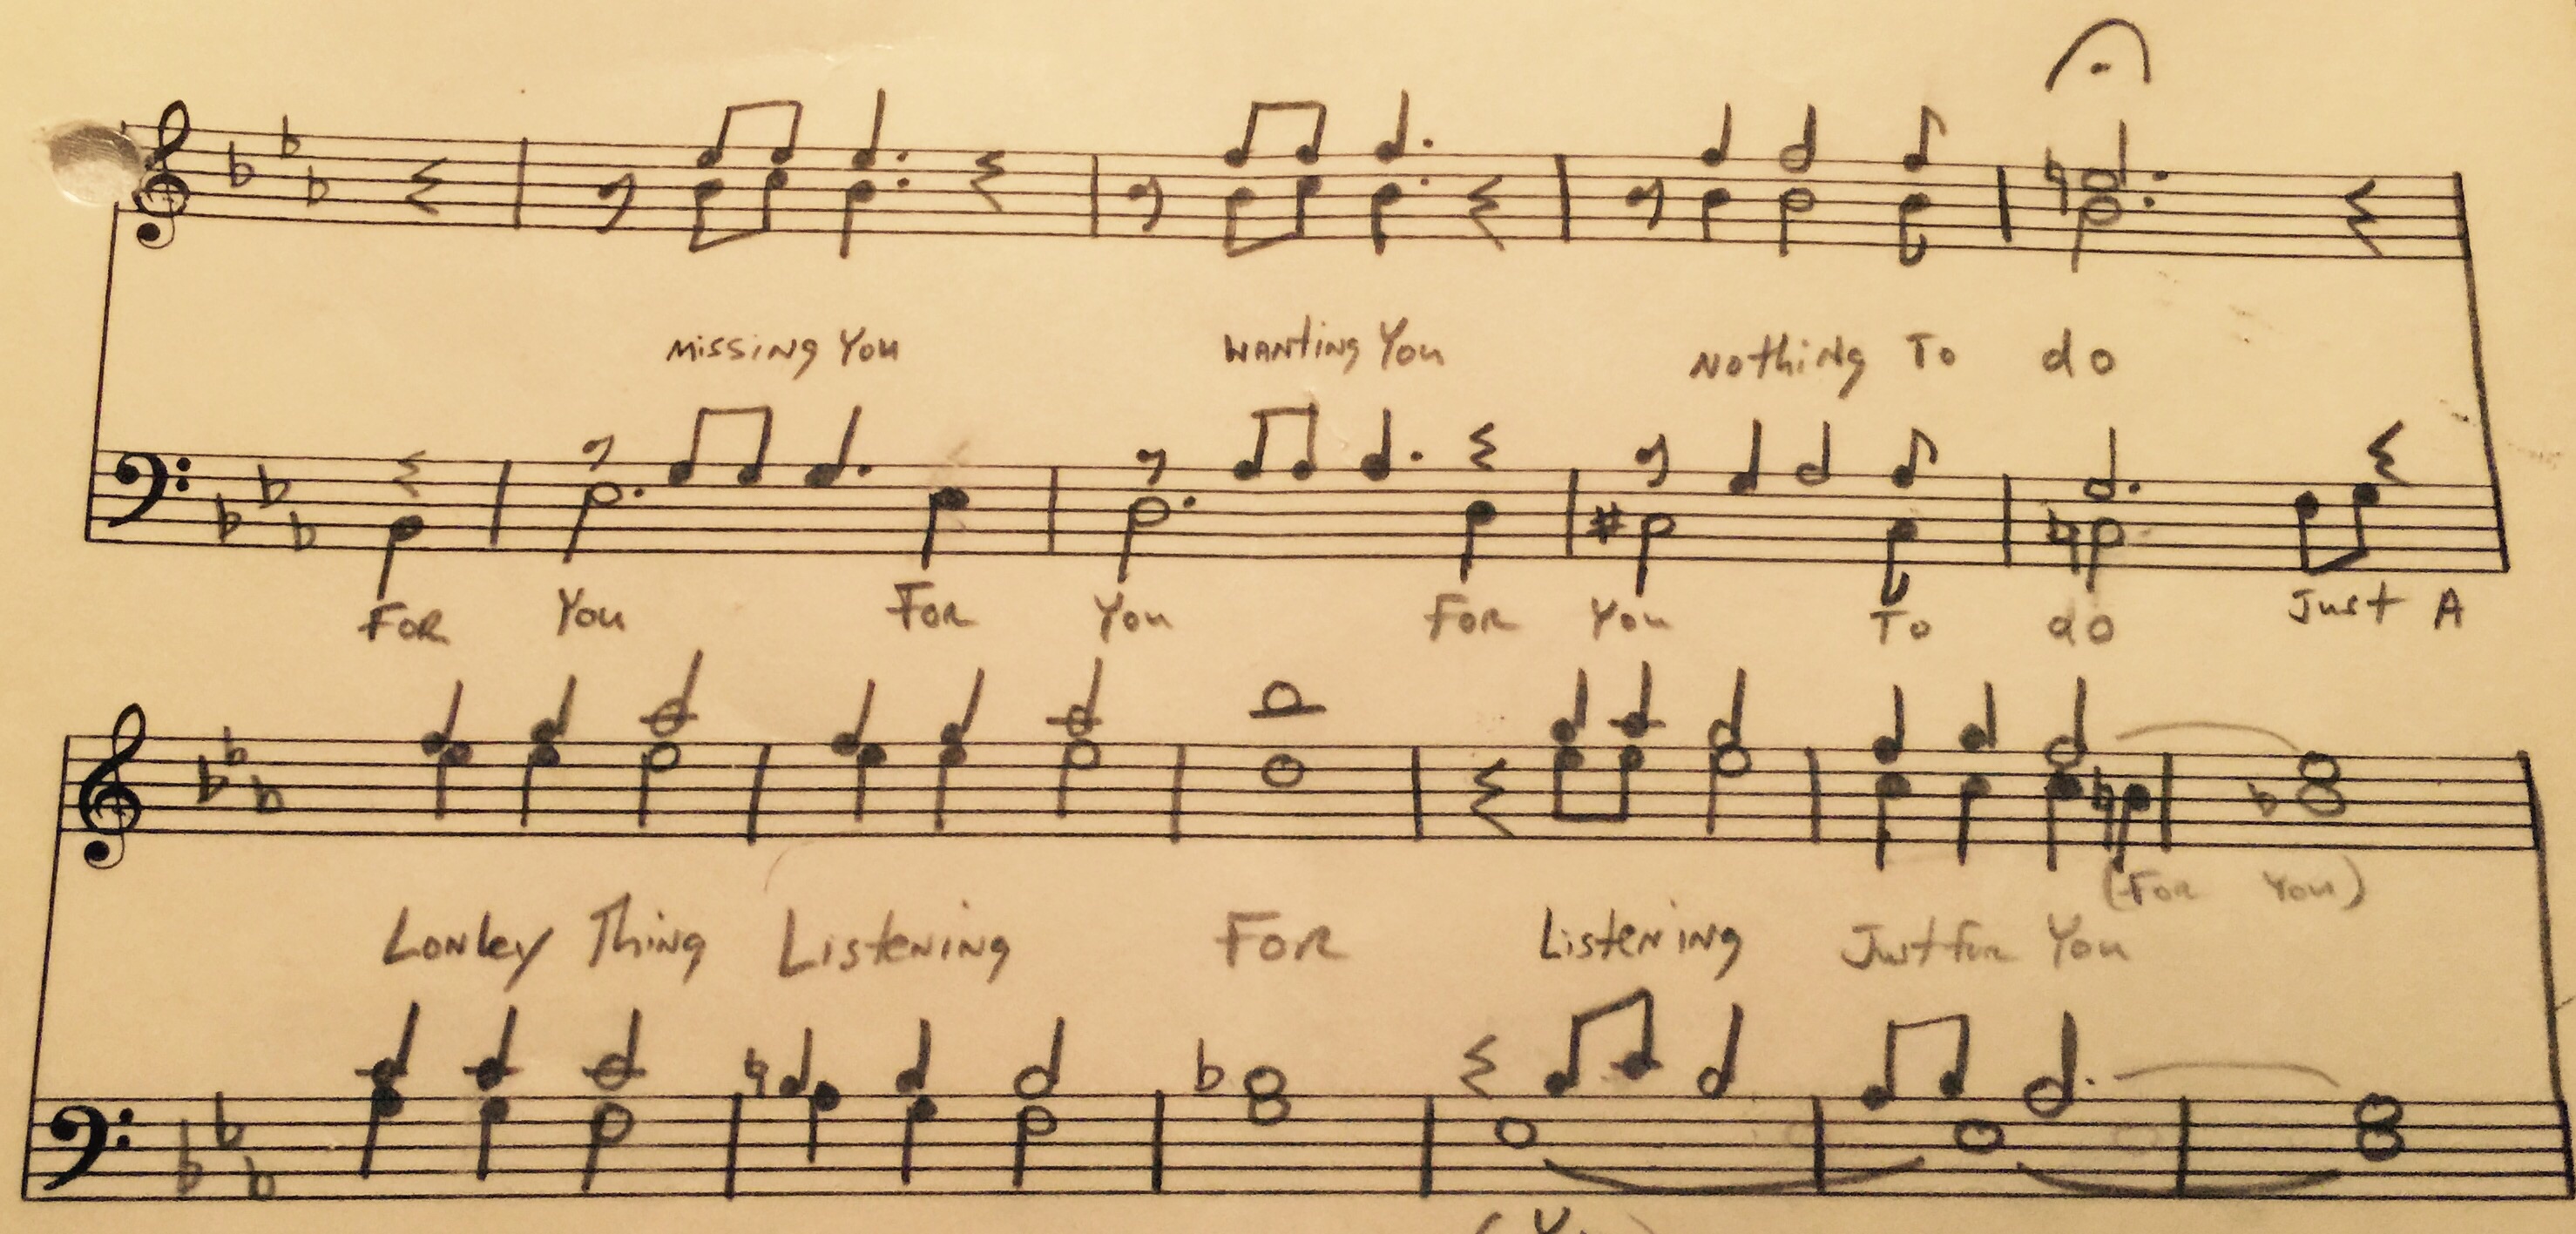 Missing You Wanting You Nothing To do
For You For You For You To do Just A
(For You)
Lonley Thing Listening For Listening Just for You